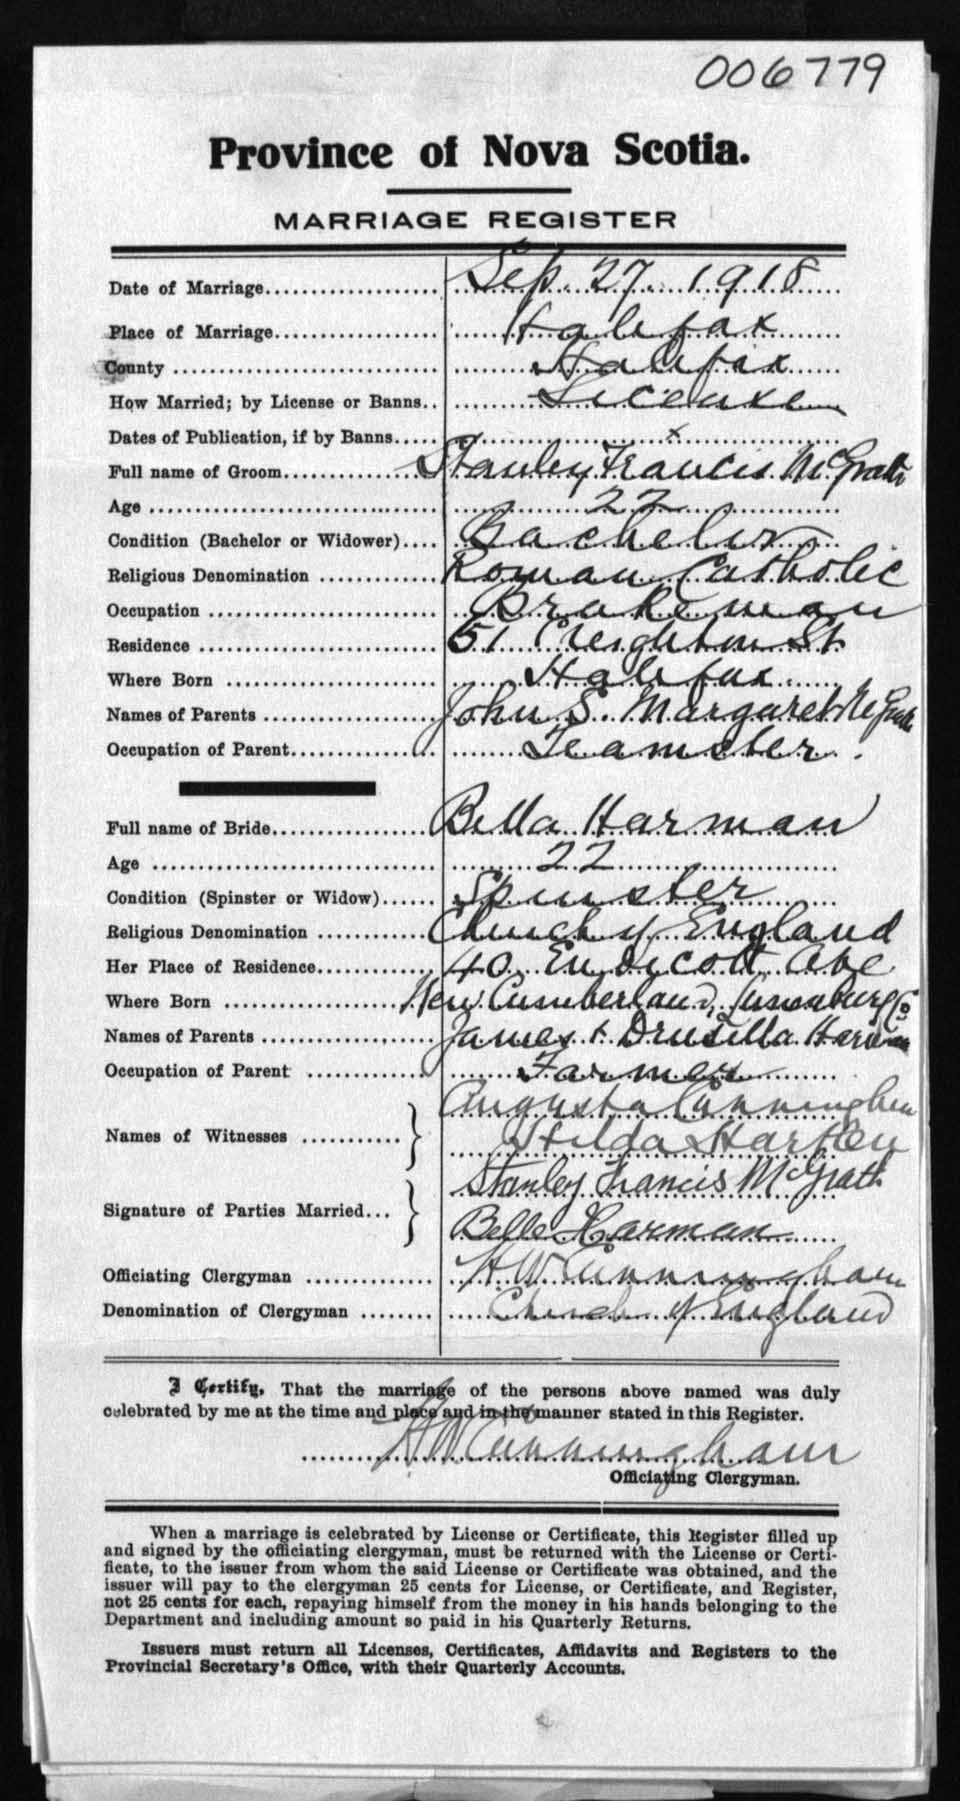 006779
Province of Nova Scotia.
MARRIAGE REGISTER
Date of Marriage Sep. 27. 1918
Place of Marriage Halifax
County Halifax
How Married; by License or Banns License
Dates of Publication, if by Banns x
Full name of Groom Stanley Francis McGrath
Age 22
Condition (Bachelor or Widower) Bachelor
Religious Denomination Roman Catholic
Occupation Brakeman
Residence 51 Creighton St
Where Born Halifax
Names of Parents John S. Margaret McGrath
Occupation of Parent Teamster.
Full name of Bride Bella Harman
Age 22
Condition (Spinster or Widow) Spinster
Religious Denomination Church of England
Her Place of Residence 40 Endicott Ave
Where Born New Cumberland, Lunenburg Co
Names of Parents James + Drusilla Harman
Occupation of Parent Farmer
Augusta Cunningham
Names of Witnesses
Hilda Hartlen
Stanley Francis McGrath
Signature of Parties Married
Belle Harman
Officiating Clergyman H W Cunningham
Denomination of Clergyman Church of England
I Certify, That the marriage of the persons above named was duly
celebrated by me at the time and place and in the manner stated in this Register.
H W Cunningham
Officiating Clergyman.
When a marriage is celebrated by License or Certificate, this Register filled up
and signed by the officiating clergyman, must be returned with the License or Certi-
ficate, to the issuer from whom the said License or Certificate was obtained, and the
issuer will pay to the clergyman 25 cents for License, or Certificate, and Register,
not 25 cents for each, repaying himself from the money in his hands belonging to the
Department and including amount so paid in his Quarterly Returns.
Issuers must return all Licenses, Certificates, Affidavits and Registers to the
Provincial Secretary's Office, with their Quarterly Accounts.